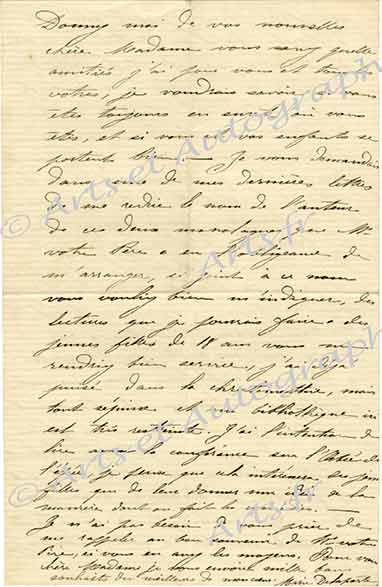 Donnez moi de vos nouvelles
chère Madame vous savez quelle
amitié j'ai pour vous et tous les
votres, je voudrais savoir si vous
êtes toujours en
êtes, et si vous et vos enfants se
portent bien. Je vous demandais
dans une de mes dernières lettres
de me redire le nom de l'auteur
de ces deux monologues que Mr
votre Père a eu l'obligeance de
m'arranger, si joint à ce nom
vous vouliez bien m'indiquer, des
lectures que je pourrais faire à des
jeunes filles de 18 ans vous me
rendriez bien service, j'ai déjà
puisé dans la chrestomathie, mais
tout s'épuise et bibliothèque ici
est très restreinte. J'ai l'intention de
lire une conférence sur l'
je pense que cela intéressera ses jeunes
filles que de leur donner une idée de la
manière dont on fait
Je n'ai pas besoin de vous prier de
me rappeler au bon souvenir de Mr votre
Père, si vous en avez les moyens. Pour vous
chère Madame je vous envoie mille bons
souhaits des meilleurs de nouveau. Marie Delaporte
© Arts et Autographes
Arts et Autographes.fr
© Arts et Autographes
Arts.fr